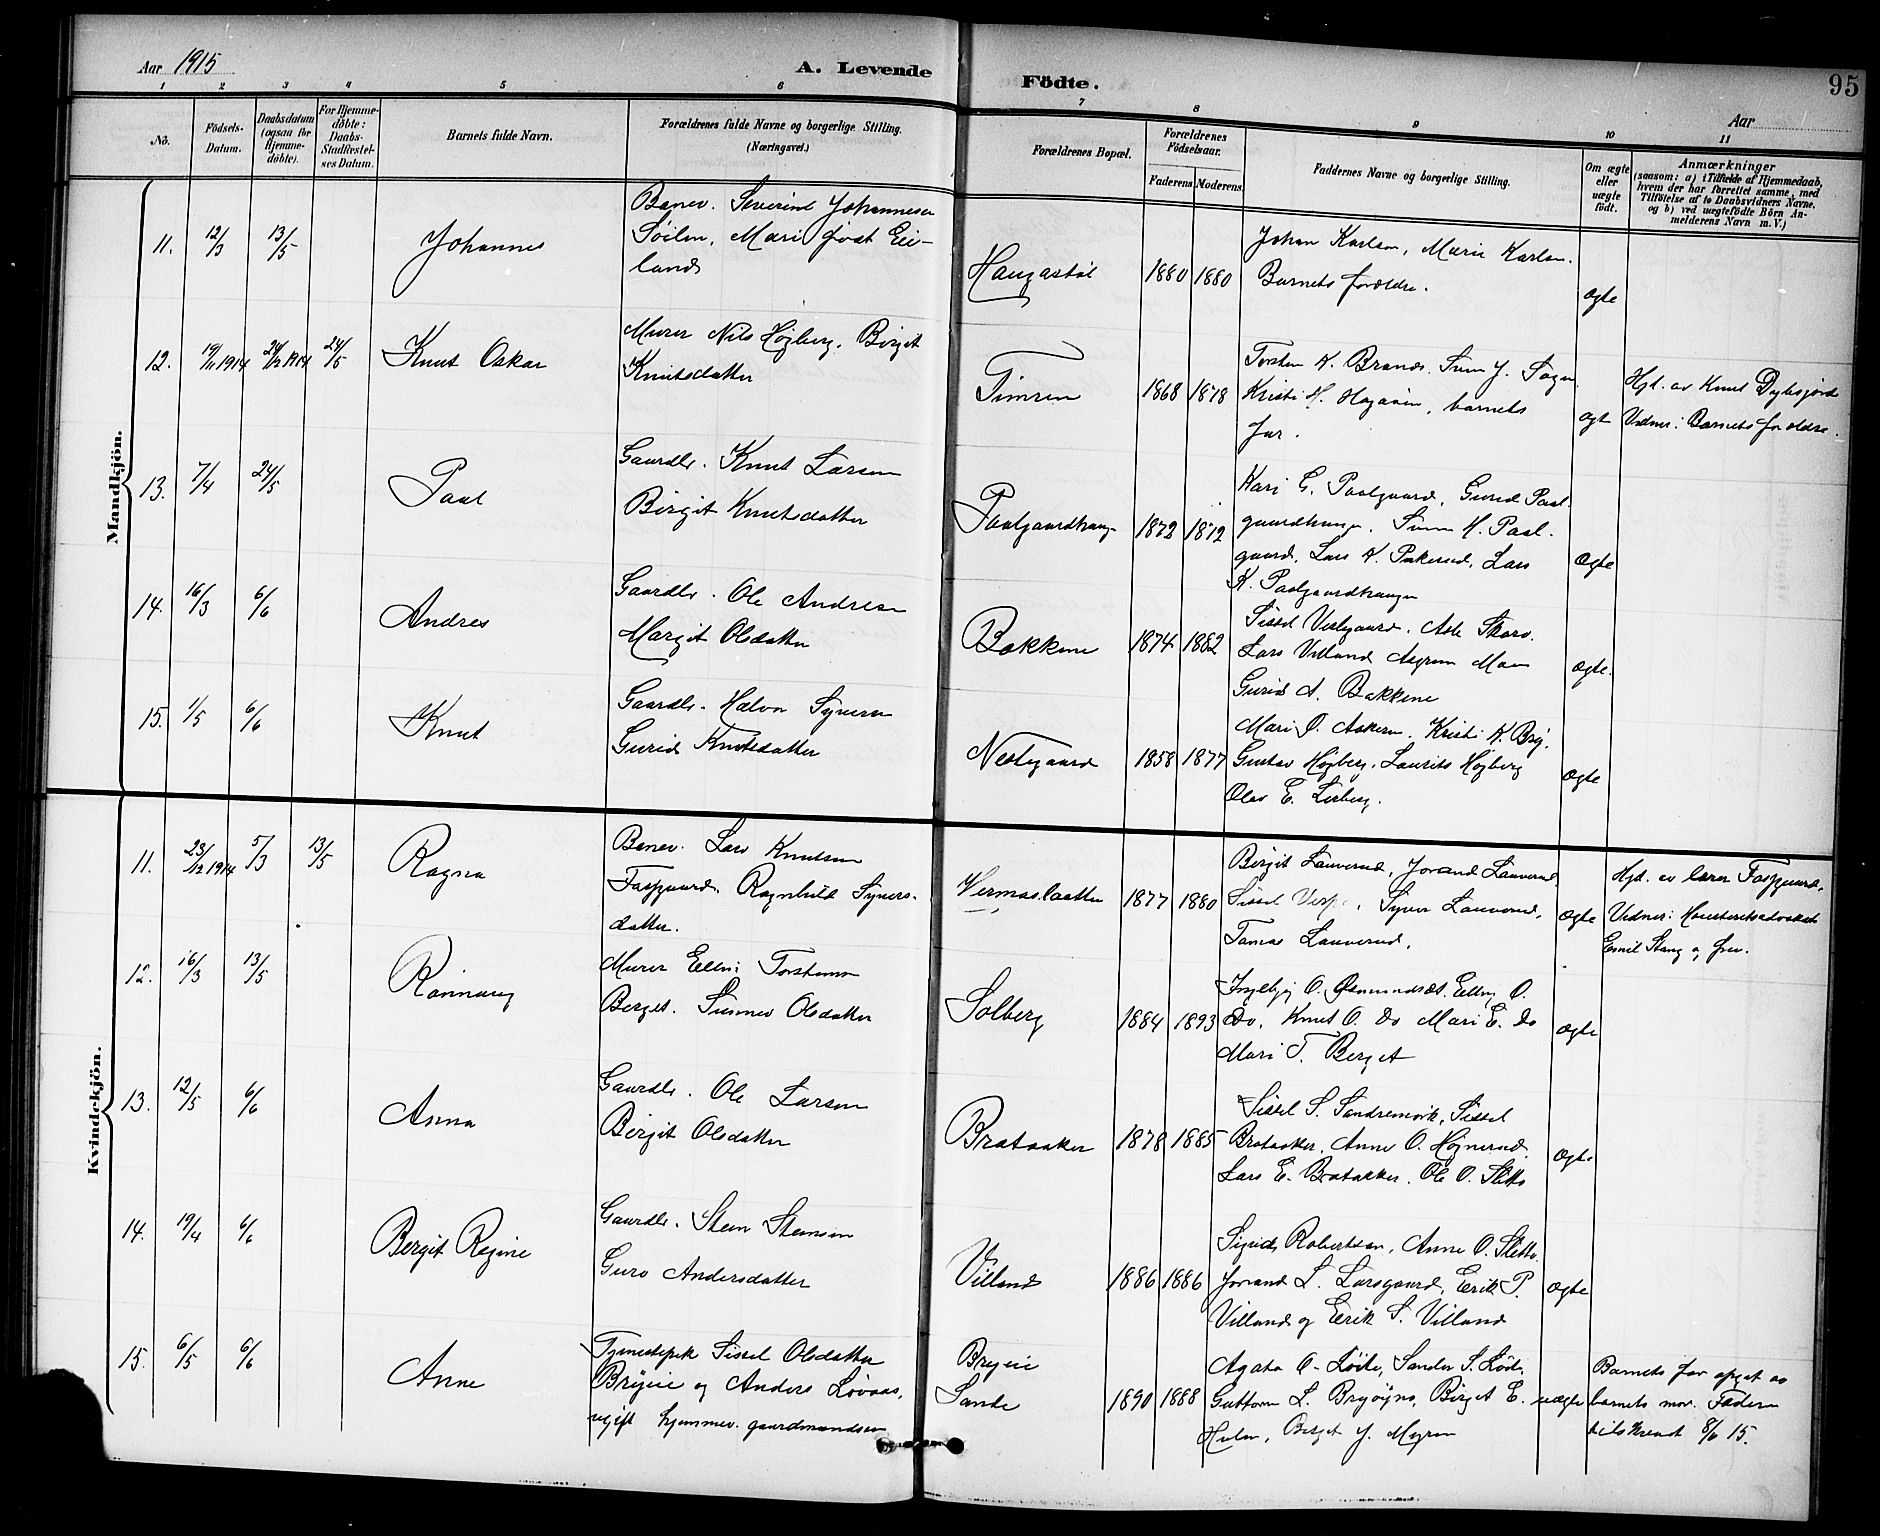 Aar 1915
A. Levende
Födte.
95
Aar
1 2 3 4 5 6 7 8 9 10 11
No.
Födsels-
Datum.
Daabsdatum
(ogsaa for
Hjemme-
döbte).
For Hjemme-
döbte:
Daabs-
Stadfæstel-
ses Datum.
Barnets fulde Navn.
Forældrenes fulde Navne og borgerlige Stilling.
(Næringsvei.)
Forældrenes Bopæl.
Forældrenes
Födselsaar.
Faderens. Moderens.
Faddernes Navne og borgerlige Stilling.
Om ægte
eller
uægte
födt.
Anmærkninger
(saasom: a) i Tilfælde af Hjemmedaab,
hvem der har forrettet samme, med
Tilföielse af to Daabsvidners Navne,
og b) ved uægtefödte Börn An-
melderens Navn m.V.)
Mandkjön.
11. 12/3 13/5 Johannes
Banev. Severin Johannesen
Söilen, Mari født Eie-
land
Haugastöl 1880 1880
Johan Karlsen, Marie Karlsen.
Barnets forældre.
ægte
12. 19/11 1914 24/12 1914 24/5 Knut Oskar
Murer Nils Højberg. Birgit
Knutsdatter
Timren 1868 1878
Torsten K. Brands. Sven J. Sagen
Kristi H. Hagaaen, barnets
far.
ægt
Hjd. av Knut Dybsjord
Vidner: Barnets forældre.
13. 7/4 24/5 Paal
Gaardbr. Knut Larsen
Birgit Knutsdatter
Paalgaardhaugen 1872 1872
Kari G. Paalgaard, Gurid Paal-
gaardhaugen. H. Paal-
gaard. Lars K. Lars
K. Paalgaardhaugen
ægte
14. 16/3 6/6 Andres
Gaardbr. Ole Andresen
Margit Olsdatter
Bakkene 1874 1882
Sissel Vestegaard. Asle Skaro.
Lars Villand Moen
Gurid A. Bakkene
ægte.
15. 1/5 6/6 Knut
Gaardbr. Halvor Syversen
Gurid Knutsdatter
Nestegaard 1858 1877
Mari O. Kristi K. Brej.
Gustav Højberg. Laurits Højberg
Olav E. Lirberg.
ægte
Kvindekjön.
11. 23/12 1914 5/3 13/5 Ragna
Banev. Lars Knutsen
Fosgaard. Ragnhild Syvers-
datter.
Vermaslaatten 1877 1880
Birgit Lauverud, Jorand Lauverud,
Sissel Syver Lauverud,
Tomas Lauverud.
ægte
Hjd. av lærer Fosgaard.
Vidner: Høiesteretsadvokat
Emil Stang og frue.
12. 16/3 13/5 Rannaug
Murer Elling Torstensen
Berget. Sunnev Olsdatter
Solberg 1884 1893
Ingebjørg O. Elling O.
Do, Knut O. Do Mari E. Do
Mari T. Berget
ægte
13. 12/5 6/6 Anna
Gaardbr. Ole Larsen
Birgit Olsdatter
Brataaker 1878 1885
Sissel S. Sandremoik, Sissel
Brataaker. Anne O. Højnerud.
Lars E. Brataaker. Ole O. Sletto
ægte
14. 19/4 6/6 Bergit Regine
Gaardbr. Stein Steinsen
Guro Andersdatter
Villand 1886 1886
Sigrid Robertsen, Anne O. Sletto.
Jorand L. Larsgaard, Erik P.
Villand og Eirik S. Villand
ægte
15. 6/5 6/6 Anne
Tjenestepik Sissel Olsdatter
Bryeie og Anders Løvaas,
ugift hjemmev. gaardmandssøn
Bryeie
Sando 1890 1888
Agata O. Löite, Sander S. Löite.
Guttorm L. Bryöigne, Birgit E.
Holm, Birgit J. Myren
uægte
Barnets far opget av
barnets mor. Faderen
tilskrevet 8/6 15.